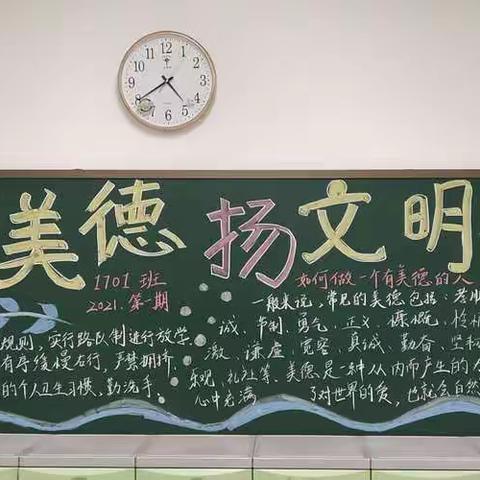 12
1
2
3
4
5
6
7
8
9
10
11
美德扬文明
1701班
2021.第一期
规则,实行路队制进行放学
有序缓慢右行,严禁拥挤,
的个人卫生习惯,勤洗手。
如何做一个有美德的人
一般来说,常见的美德包括:
诚、节制、勇气、正义、慷慨、
激、谦虚、宽容、真诚、勤奋、坚
乐观、礼让等。美德是一种从内而产生的力
心中充满了对世界的爱,也就会自然